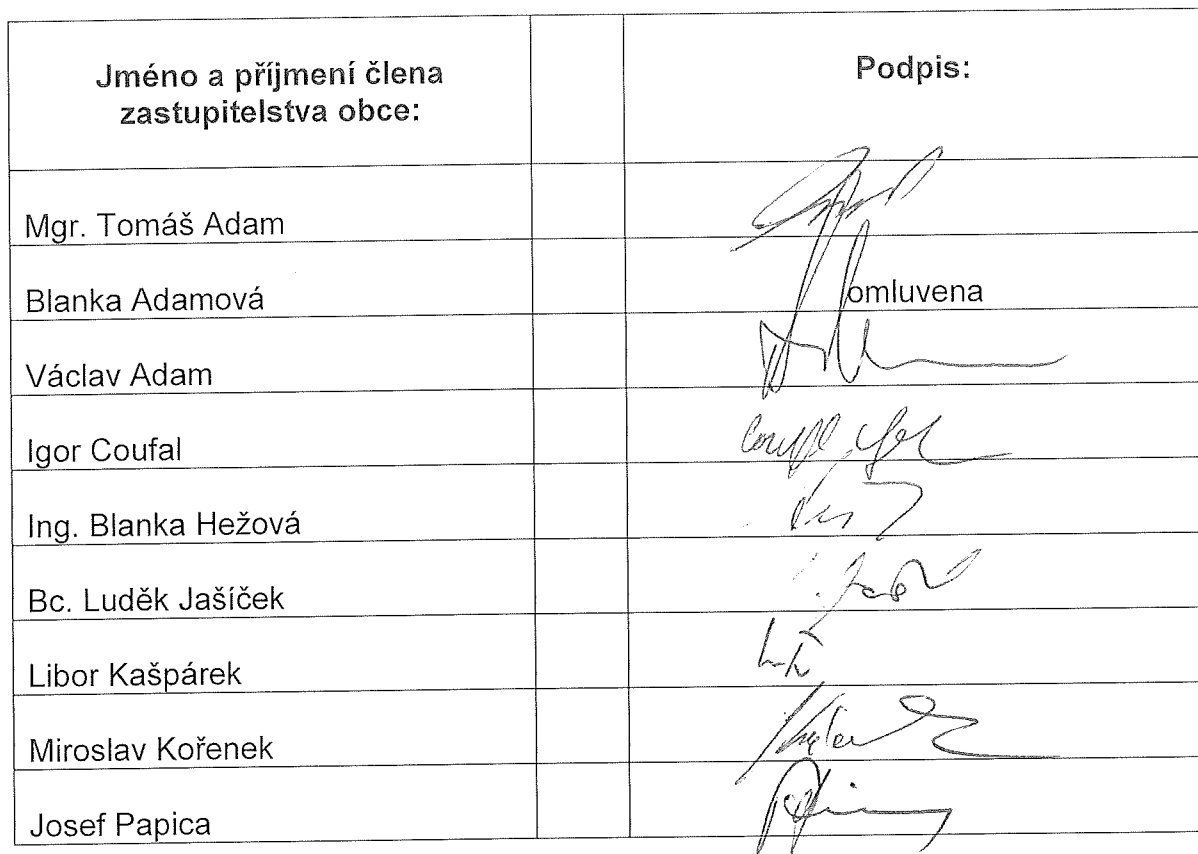 Jméno a příjmení člena
zastupitelstva obce:
Podpis:
Mgr. Tomáš Adam
Blanka Adamová
omluvena
Václav Adam
Igor Coufal
Ing. Blanka Hežová
Bc. Luděk Jašíček
Libor Kašpárek
Miroslav Kořenek
Josef Papica